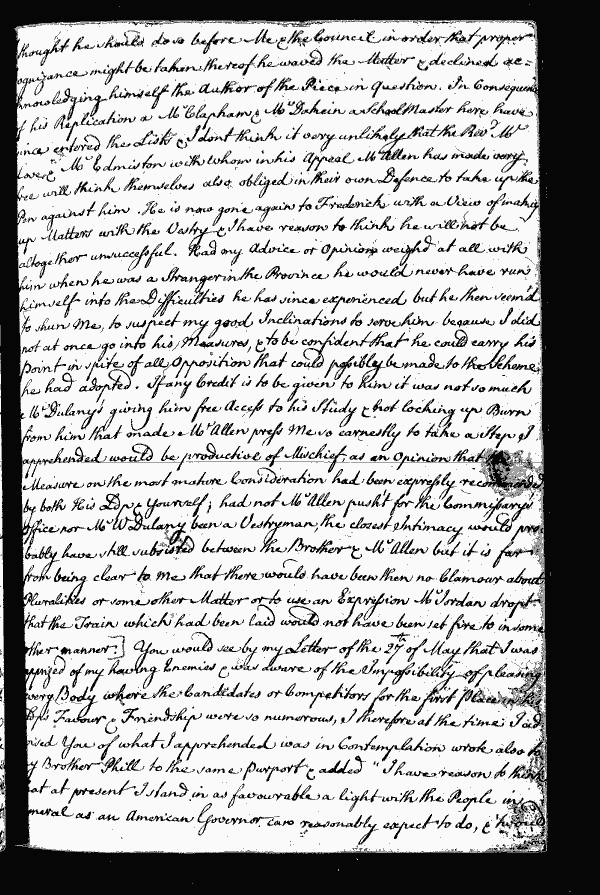 thought he should do so before Me & the Council in order that proper
cognizance might be taken thereof he waved the Matter & declined ac=
knowledging himself the Author of the Piece in Question. In Consequence
of his Replication a Mr. Clapham & Mr. Dakein a School Master here have
since entered the Lists & I dont think it very unlikely that the Revd. Mr.
Love & Mr. Edmiston with whom in his Appeal Mr. Allen has made very
free will think themselves also obliged in their own Defence to take up the
Pen against him. He is now gone again to Frederick with a View of making
up Matters with the Vestry & I have reason to think he will not be
altogether unsuccessful. Had my Advice or Opinion weigh'd at all with
him when he was a Stranger in the Province he would never have run
himself into the Difficulties he has since experienced but he then seem'd
to shun Me, to suspect my good Inclinations to serve him because I did
not at once go into his Measures, & to be confident that he could carry his
Point in spite of all Opposition that could possibly be made to the Scheme
he had adopted. If any Credit is to be given to him it was not so much
Mr. Dulany's giving him free Access to his Study & not locking up Burn
from him that made Mr. Allen press Me so earnestly to take a Step I
apprehended would be productive of Mischief as an Opinion that
Measure on the most mature Consideration had been expressly recommended
by both His Ldp & Yourself; had not Mr. Allen push't for the Commissary's
Office nor Mr. W Dulany been a Vestryman, the closest Intimacy would pro
bably have still subsisted between the Brother & Mr. Allen but it is far
from being clear to me that there would have been then no Clamour about
Pluralities or some other Matter or to use an Expression Mr. Jordan dropt
that the Train which had been laid would not have been set fire to in some
other manner] You would see by my Letter of the 27th of May that I was
apprized of my having Enemies & was aware of the Impossibility of pleasing
every Body where the Candidates or Competitors for the first Place in his
Ldp's Favour & Friendship were so numerous, I therefore at the time I ad
vised You of what I apprehended was in Contemplation wrote also to
my Brother Phill to the same Purport & added "I have reason to think
that at present I stand in as favourable a light with the People in
general as an American Governor can reasonably expect to do, &